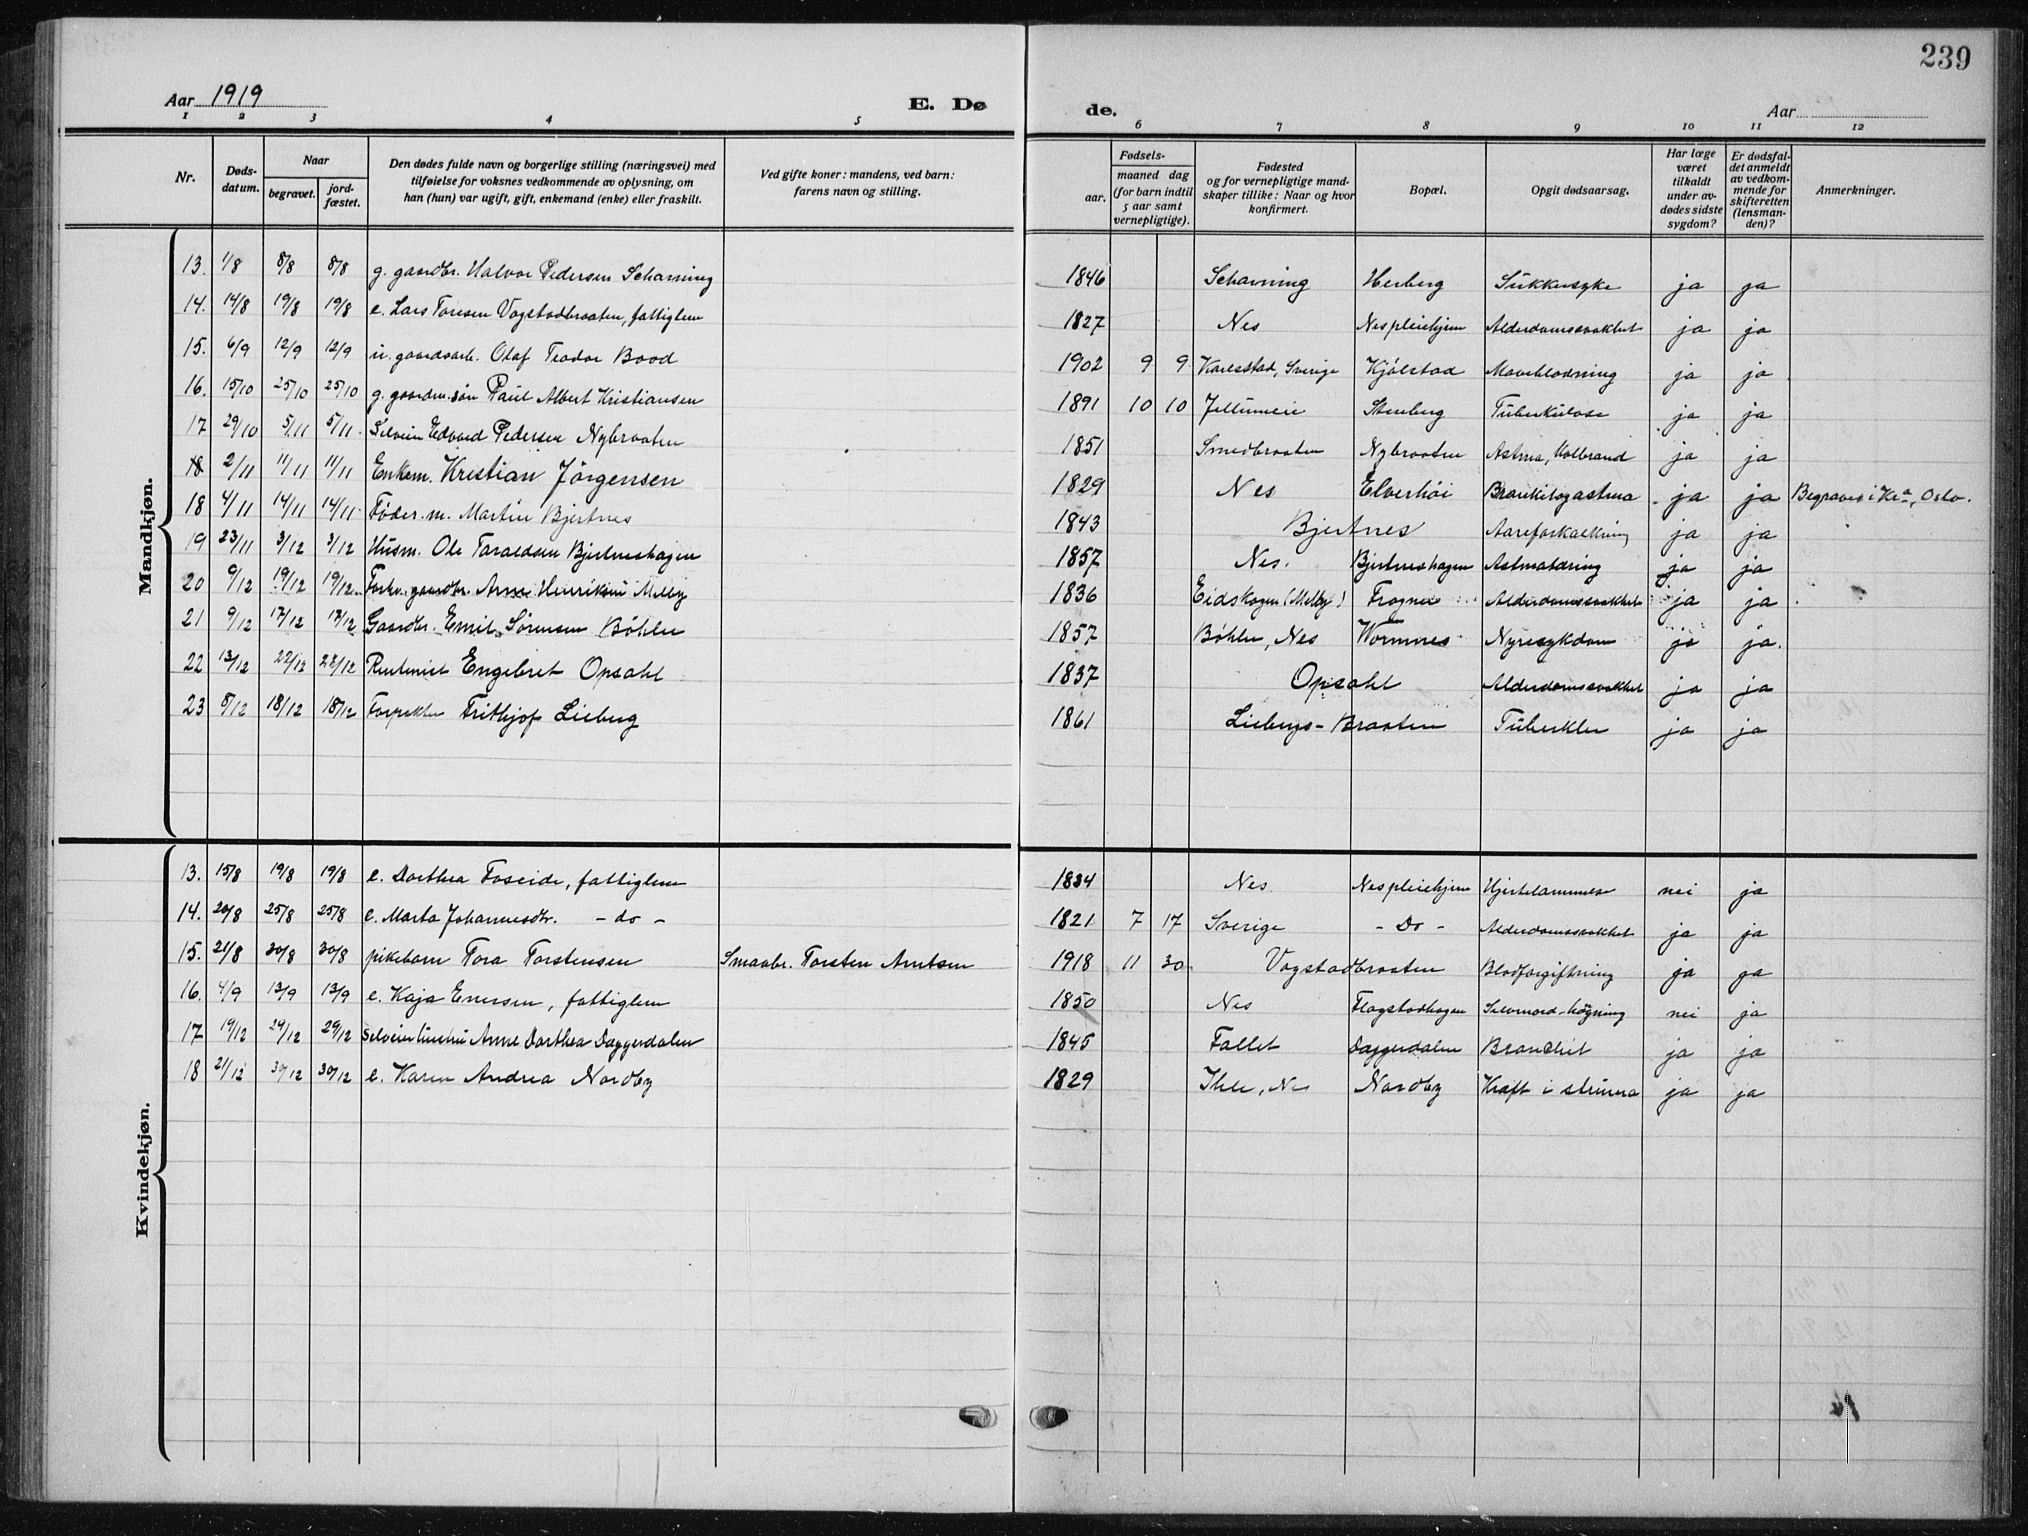 239
Aar 1919 E. Dø de. Aar
1 2 3 4 5 6 7 8 9 10 11 12
Nr. Døds-datum. Naar begravet. jord-fæstet. Den dødes fulde navn og borgerlige stilling (næringsvei) med tilføielse for voksnes vedkommende av oplysning, om han (hun) var ugift, gift, enkemand (enke) eller fraskilt. Ved gifte koner: mandens, ved barn: farens navn og stilling. Fødsels- aar. maaned dag (for barn indtil 5 aar samt vernepligtige). Fødested og for vernepligtige mandskaper tillike: Naar og hvor konfirmert. Bopæl. Opgit dødsaarsag. Har læge været tilkaldt under avdødes sidste sygdom? Er dødsfaldet anmeldt av vedkommende for skifteretten (lensmanden)? Anmerkninger.
Mandkjøn.
13. 1/8 8/8 8/8 g. gaardbr. Halvor Pedersen Scharning 1846 Scharning Herberg Sukkersyke ja ja
14. 14/8 19/8 19/8 e. Lars Toresen Vogstadbraaten, fattiglem 1827 Nes Nes pleiehjem Alderdomssvakhet ja ja
15. 6/9 12/9 12/9 u. gaardsarb. Olaf Teodor Bood 1902 9 9 Karlsstad, Sverige Kjölstad Maveblødning ja ja
16. 15/10 25/10 25/10 g. gaardm.søn Paul Albert Kristiansen 1891 10 10 Jellumeie Stenberg Tuberkulose ja ja
17 29/10 5/11 5/11 Selveier Edvard Pedersen Nybraaten 1851 Smedbraaten Nybraaten Astma, Kolbrand ja ja
18 2/11 11/11 11/11 Enkem. Kristian Jörgensen 1829 Nes Elverhöi Bronkit og astma ja ja Begravet i Kr.a, Oslo.
18 4/11 14/11 14/11 Föder.m. Martin Bjertnes 1843 Bjertnes Aareforkalkning ja ja
19 23/11 3/12 3/12 Husm. Ole Taraldsen Bjertneshagen 1857 Nes. Bjertneshagen Astmatæring ja ja
20 9/12 19/12 19/12 Forhv. gaardbr. Arne Henriksen Melby 1836 Eidskogen (Melby) Frogner Alderdomssvakhet ja ja
21 9/12 17/12 17/12 Gaardbr. Emil Sörensen Böhler 1857 Böhler, Nes Wormnes Nyresykdom ja ja.
22 13/12 22/12 22/12 Rentenist Engebret Opsahl 1837 Opsahl Alderdomssvakhet ja ja
23 8/12 18/12 18/12 Forpakter Frithjof Lieberg 1861 Liebergs-Braaten Tuberkler ja ja
Kvindekjøn.
13. 15/8 19/8 19/8 e. Dorthea Foseide, fattiglem 1834 Nes Nes pleiehjem Hjertelammelse nei ja
14. 20/8 25/8 25/8 e. Marta Johannesdtr. - do - 1821 7 17 Sverige - Do - Alderdomssvakhet ja ja
15. 21/8 30/8 30/8 pikebarn Tora Torstensen Smaabr. Torsten Arntsen 1918 11 30 Vogstadbraaten Blodforgiftning ja ja
16. 4/9 13/9 13/9 e. Kaja Enersen, fattiglem 1850 Nes Flagstadhagen Selvmord-högning nei ja
17 19/12 29/12 29/12 Selveierhustru Anne Dorthea Daggerdalen 1845 Fallet Daggerdalen Bronchit ja ja
18 21/12 30/12 30/12 e. Karen Andrea Nordby 1829 Ihle, Nes Nordby Kræft i strinna ja ja